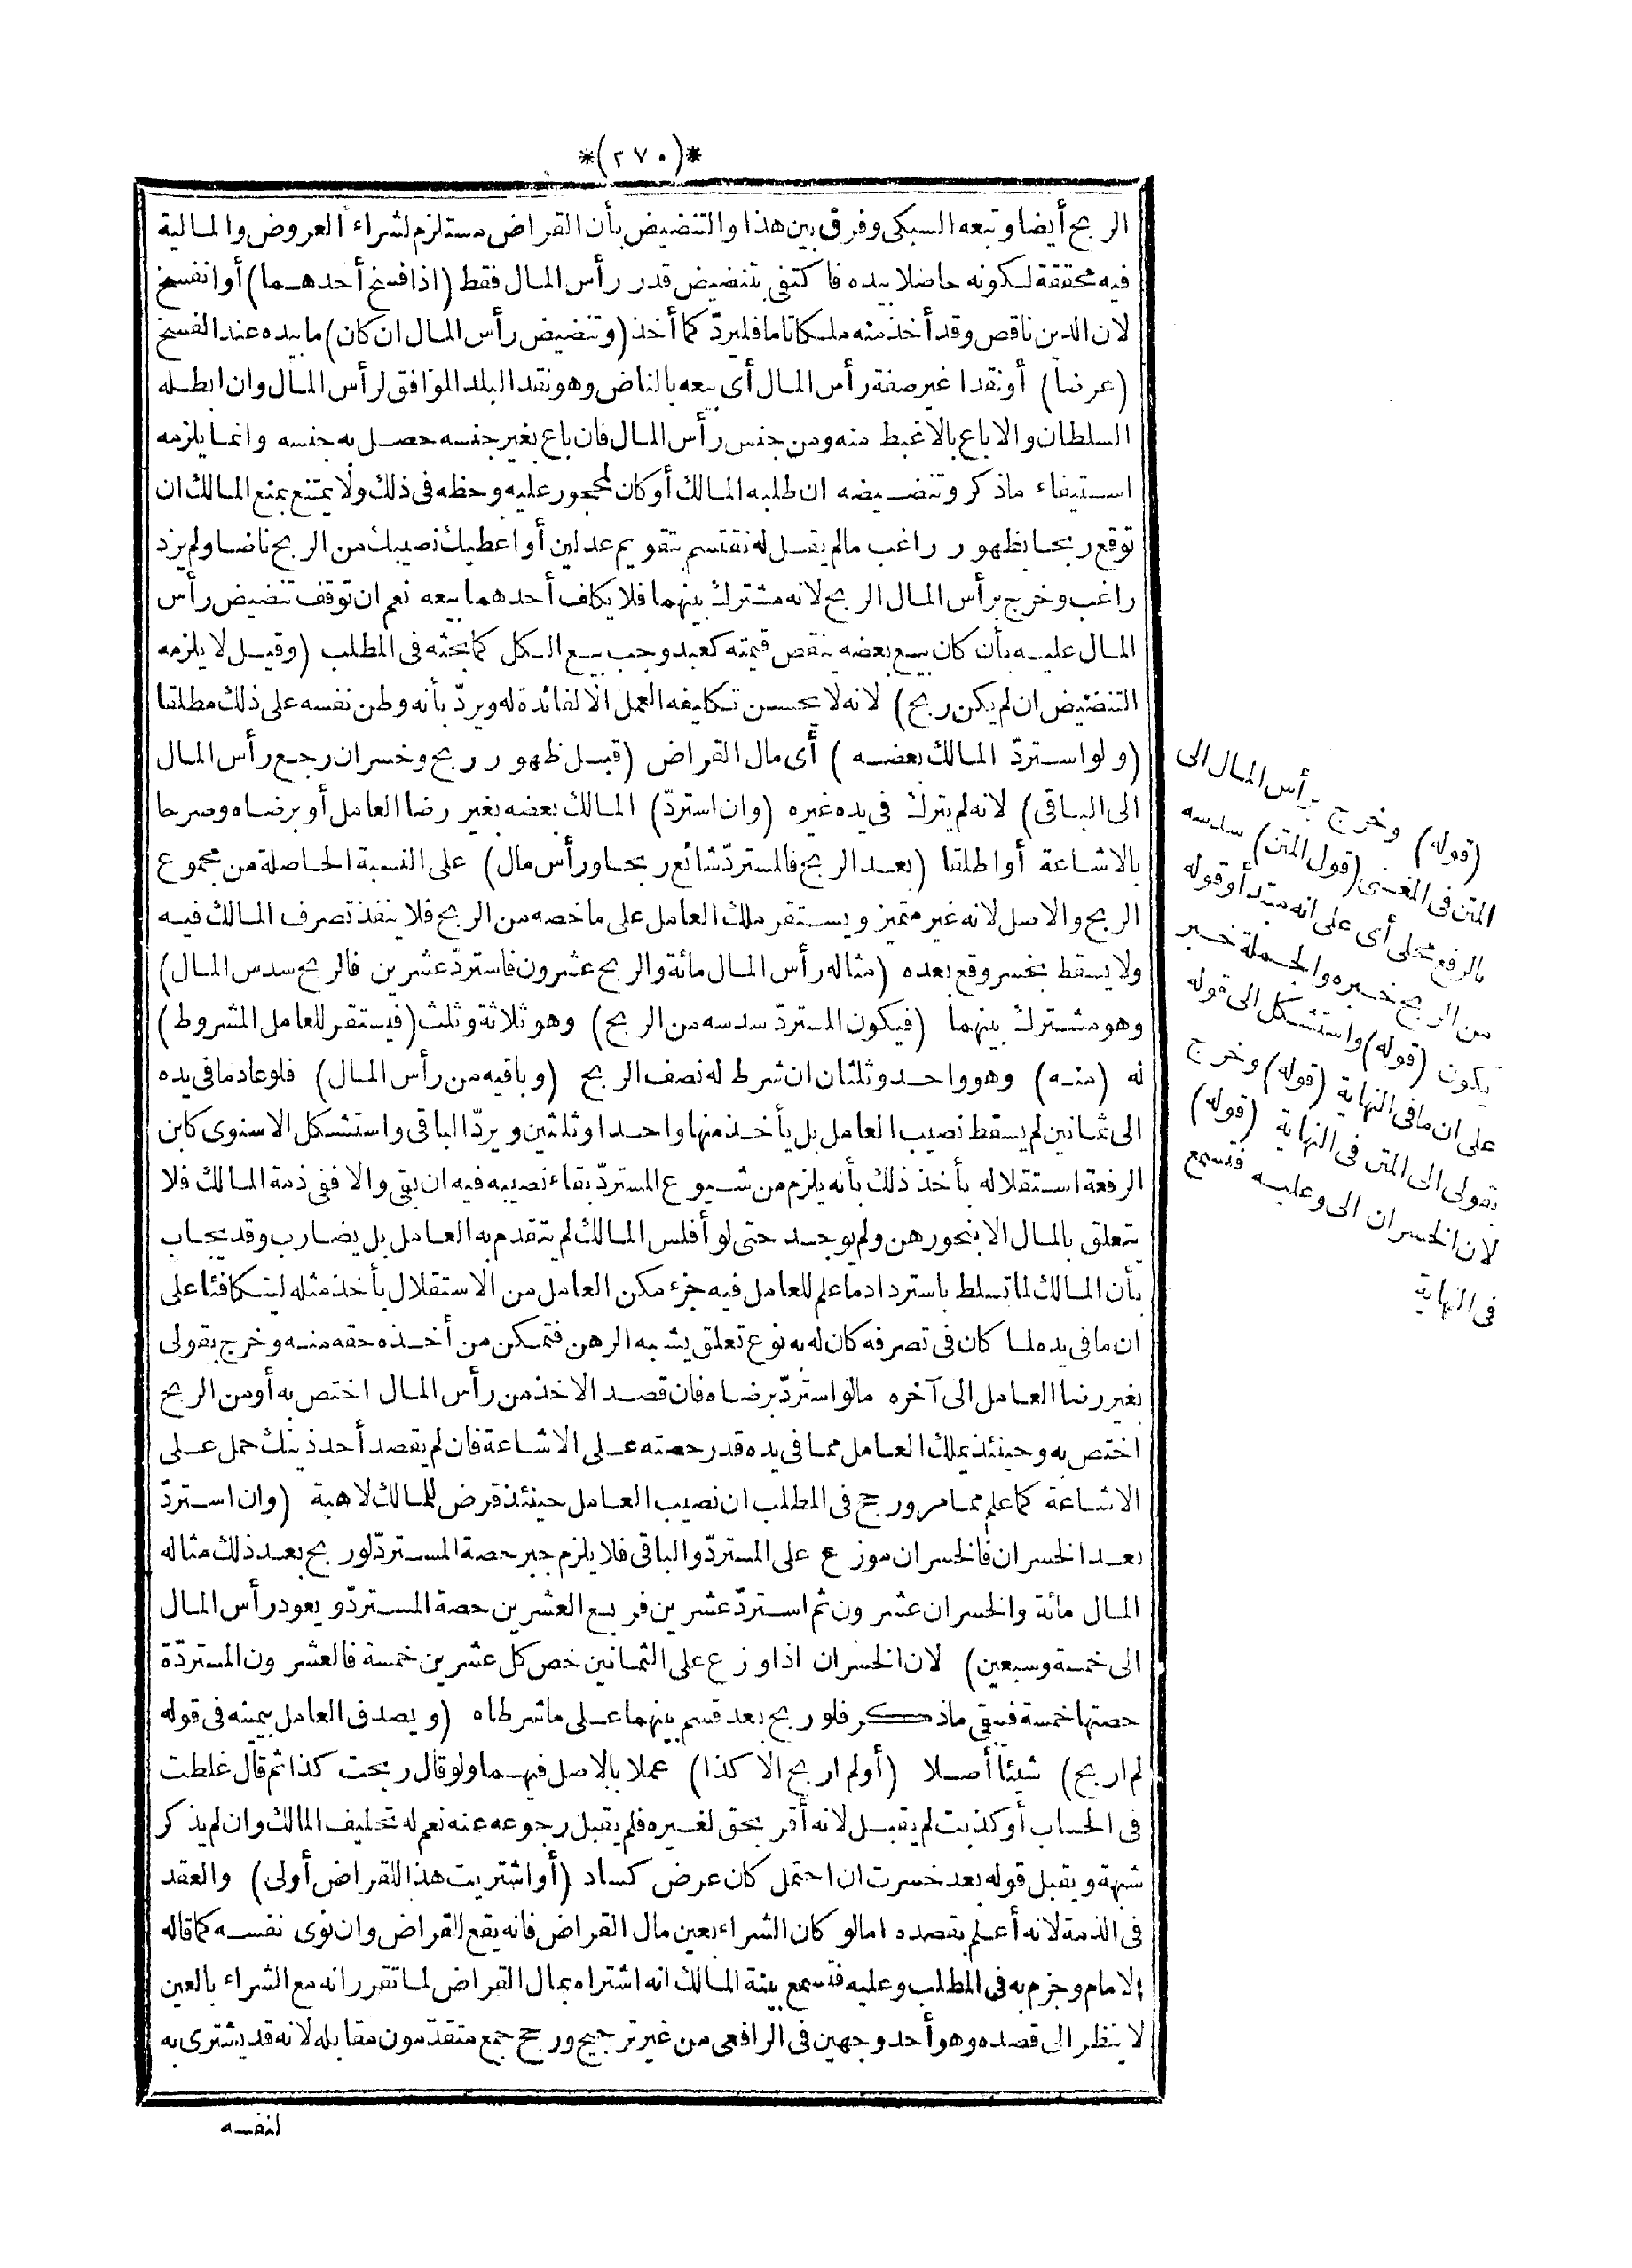 *(٢٧٠)*
الربح أيضا وتبعه السبكى وفرق بين هذا والتنضيض بأن القراض مستلزم لشراء العروض والمالية
فيه محققة لكونه حاصلا بيده فاكتفى بتنضيض قدر رأس المال فقط (اذا فسخ أحدهما) أو انفسخ
لان الدين ناقص وقد أخذ منه ملكا تاما فليردّ كما أخذ (وتنضيض رأس المال ان كان) ما بيده عند الفسخ
(عرضا) أو نقدا غير صفة رأس المال أى بيعه بالناض وهو نقد البلد الموافق لرأس المال وان ابطله
السلطان والا باع بالاغبط منه ومن جنس رأس المال فان باع بغير جنسه حصل به جنسه وانما يلزمه
استيفاء ماذكر وتنضيضه ان طلبه المالك أو كان لمحجور عليه وحظه فى ذلك ولا يمتنع بمنع المالك ان
توقع ربحا بظهور راغب مالم يقل له نقتسم بتقويم عدلين أو اعطيك نصيبك من الربح ناضا ولم يزد
راغب وخرج برأس المال الربح لانه مشترك بينهما فلا يكلف أحدهما بيعه نعم ان توقف تنضيض رأس
المال عليه بأن كان بيع بعضه ينقص قيمته كعبد وجب بيع الكل كما بحثه فى المطلب (وقيل لا يلزمه
التنضيض ان لم يكن ربح) لانه لا يحسن تكليفه العمل الا لفائدة له ويردّ بأنه وطن نفسه على ذلك مطلقا
(ولو استردّ المالك بعضه) أى مال القراض (قبل ظهور ربح وخسران رجع رأس المال
الى الباقى) لانه لم يترك فى يده غيره (وان استردّ) المالك بعضه بغير رضا العامل أو برضاه وصرحا
بالاشاعة أو اطلقا (بعد الربح فالمستردّ شائع ربحا ورأس مال) على النسبة الحاصلة من مجموع
الربح والاصل لانه غير متميز ويستقر ملك العامل على ماخصه من الربح فلا ينفذ تصرف المالك فيه
ولا يسقط بخسر وقع بعده (مثاله رأس المال مائة والربح عشرون فاستردّ عشرين فالربح سدس المال)
وهو مشترك بينهما (فيكون المستردّ سدسه من الربح) وهو ثلاثة وثلث (فيستقر للعامل المشروط)
له (منه) وهو واحد وثلثان ان شرط له نصف الربح (وباقيه من رأس المال) فلو عاد مافى يده
الى ثمانين لم يسقط نصيب العامل بل يأخذ منها واحدا وثلثين ويردّ الباقى واستشكل الاسنوى كابن
الرفعة استقلاله بأخذ ذلك بأنه يلزم من شيوع المستردّ بقاء نصيبه فيه ان بقى والا ففى ذمة المالك فلا
يتعلق بالمال الا بنحو رهن ولم يوجد حتى لو أفلس المالك لم يتقدم به العامل بل يضارب وقد يجاب
بأن المالك لما تسلط باسترداد ماعلم للعامل فيه جزء مكن العامل من الاستقلال بأخذ مثله ليتكافئا على
ان مافى يده لما كان فى تصرفه كان له به نوع تعلق يشبه الرهن فتمكن من أخذه حقه منه وخرج بقولى
بغير رضا العامل الى آخره مالو استردّ برضاه فان قصد الاخذ من رأس المال اختص به أو من الربح
اختص به وحينئذ يملك العامل مما فى يده قدر حصته على الاشاعة فان لم يقصد أحد ذينك حمل على
الاشاعة كما علم مما مر ورجح فى المطلب ان نصيب العامل حينئذ قرض للمالك لا هبة (وان استردّ
بعد الخسران فالخسران موزع على المستردّ والباقى فلا يلزم جبر حصة المستردّ لو ربح بعد ذلك مثاله
المال مائة والخسران عشرون ثم استردّ عشرين فربع العشرين حصة المستردّ ويعود رأس المال
الى خمسة وسبعين) لان الخسران اذا وزع على الثمانين خص كل عشرين خمسة فالعشرون المستردّة
حصتها خمسة فيبقى ماذكر فلو ربح بعد قسم بينهما على ماشرطاه (ويصدق العامل بيمينه فى قوله
لم اربح) شيئا أصلا (أو لم اربح الا كذا) عملا بالاصل فيهما ولو قال ربحت كذا ثم قال غلطت
فى الحساب أو كذبت لم يقبل لانه أقر بحق لغيره فلم يقبل رجوعه عنه نعم له تحليف المالك وان لم يذكر
شبهة ويقبل قوله بعد خسرت ان احتمل كان عرض كساد (أو اشتريت هذا للقراض أولى) والعقد
فى الذمة لانه أعلم بقصده امالو كان الشراء بعين مال القراض فانه يقع للقراض وان نوى نفسه كما قاله
الامام وجزم به فى المطلب وعليه فتسمع بينة المالك انه اشتراه بمال القراض لما تقرر انه مع الشراء بالعين
لا ينظر الى قصده وهو أحد وجهين فى الرافعى من غير ترجيح ورجح جمع متقدّمون مقابله لانه قد يشترى به
لنفسه
(قوله) وخرج برأس المال الى
المتن فى المغنى (قول المتن) سدسه
بالرفع محلى أى على انه مبتدأ وقوله
من الربح خبره والجملة خبر
يكون (قوله) واستشكل الى قوله
على ان مافى النهاية (قوله) وخرج
بقولى الى المتن فى النهاية (قوله)
لان الخسران الى وعليه فتسمع
فى النهاية